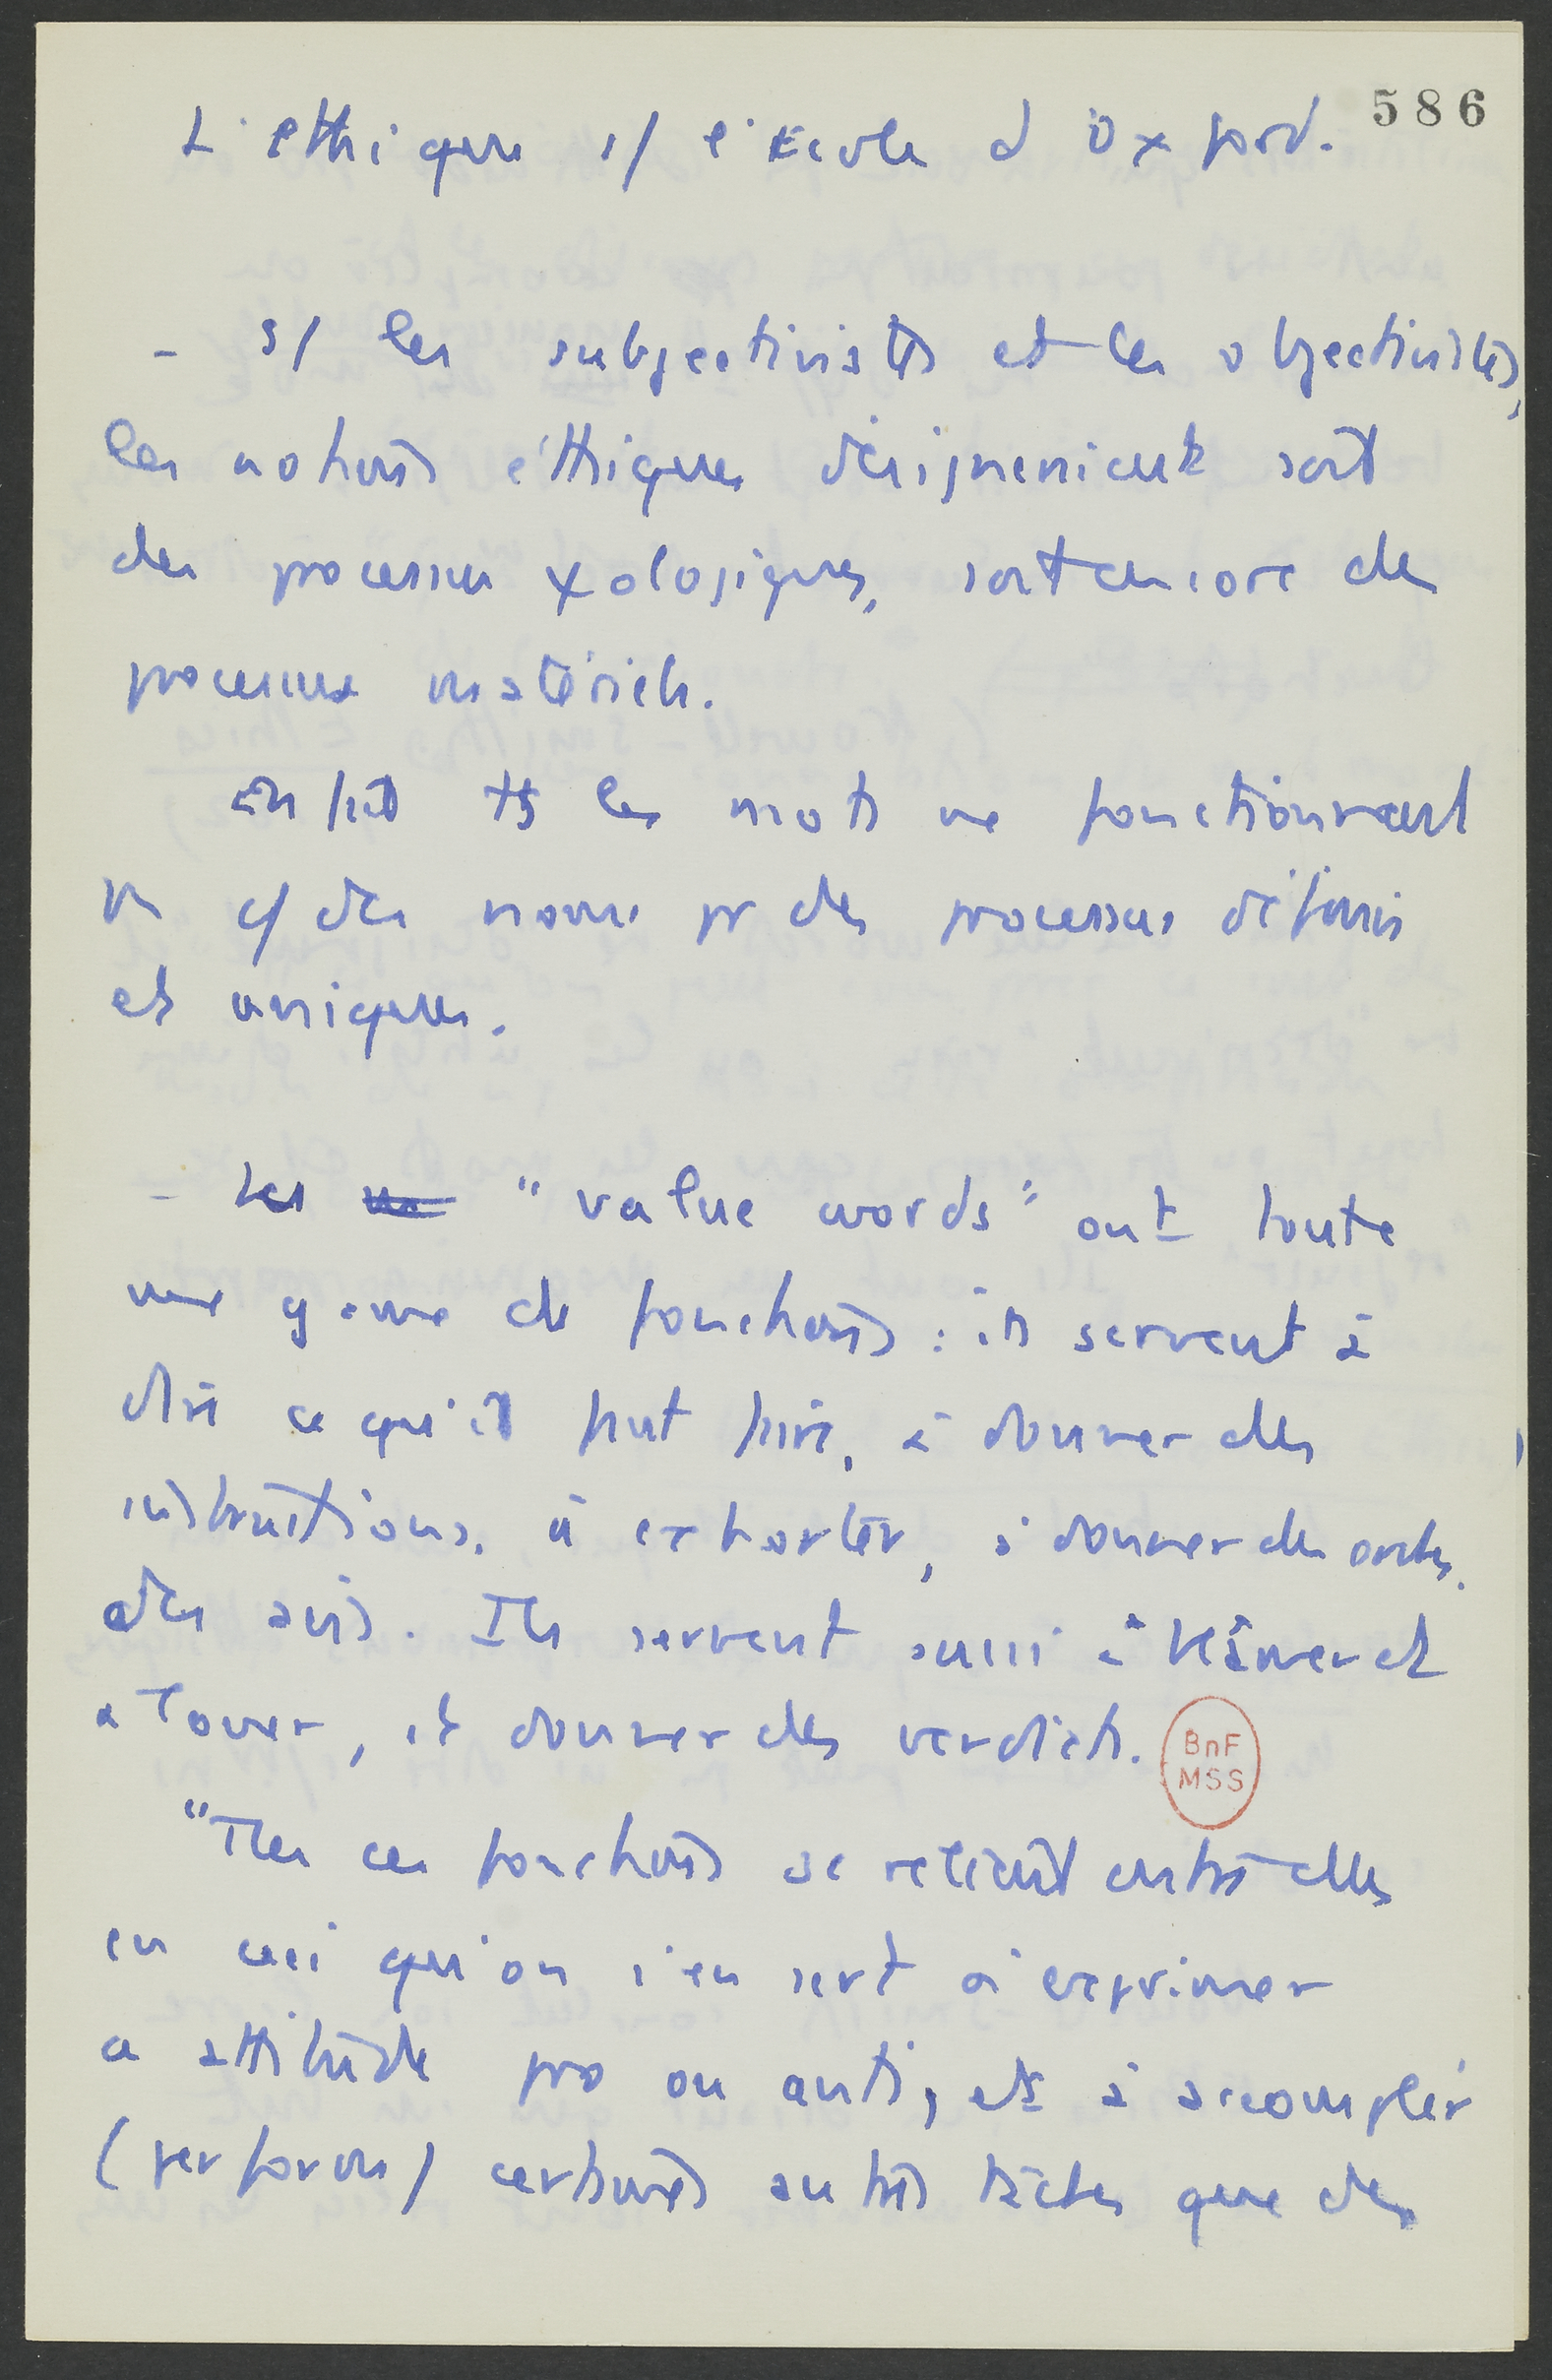 586
L'éthique s/ l'école d'Oxford.
- s/ les subjectivistes et les objectivistes,
les notions éthiques désigneraient soit
des processus ψologiques, soit encore des
processus matériels.
En fait ts les mots ne fonctionnent
pas c/ des noms pr des processus définis
et uniques.
- Les "value words" ont toute
une gamme de fonctions : ils servent à
dire ce qu'il faut faire, à donner des
instructions, à exhorter, à donner des ordres,
des avis. Ils servent aussi à blâmer et
à louer, et donner des verdicts.
BnF
MSS
"Ttes ces fonctions se relient entre elles
en ceci qu'on s'en sert à exprimer
attitude pro ou anti, et à accomplir
(perform) certaines autres tâches que des